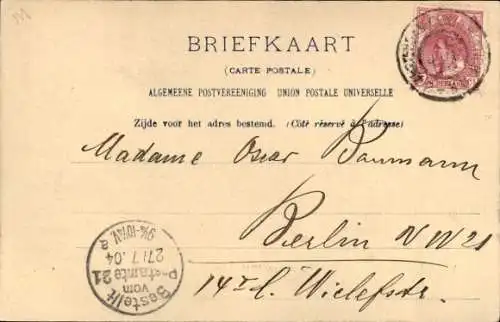 BRIEFKAART
(CARTE POSTALE)
ALGEMEENE POSTVEREENIGING UNION POSTALE UNIVERSELLE
Zijde voor het adres bestemd. (Côté réservé à l'adresse)
Madame Oscar Baumann
Berlin NW21
Wiclefstr.
Bestellt
vom
Postamte 21
27/7.04